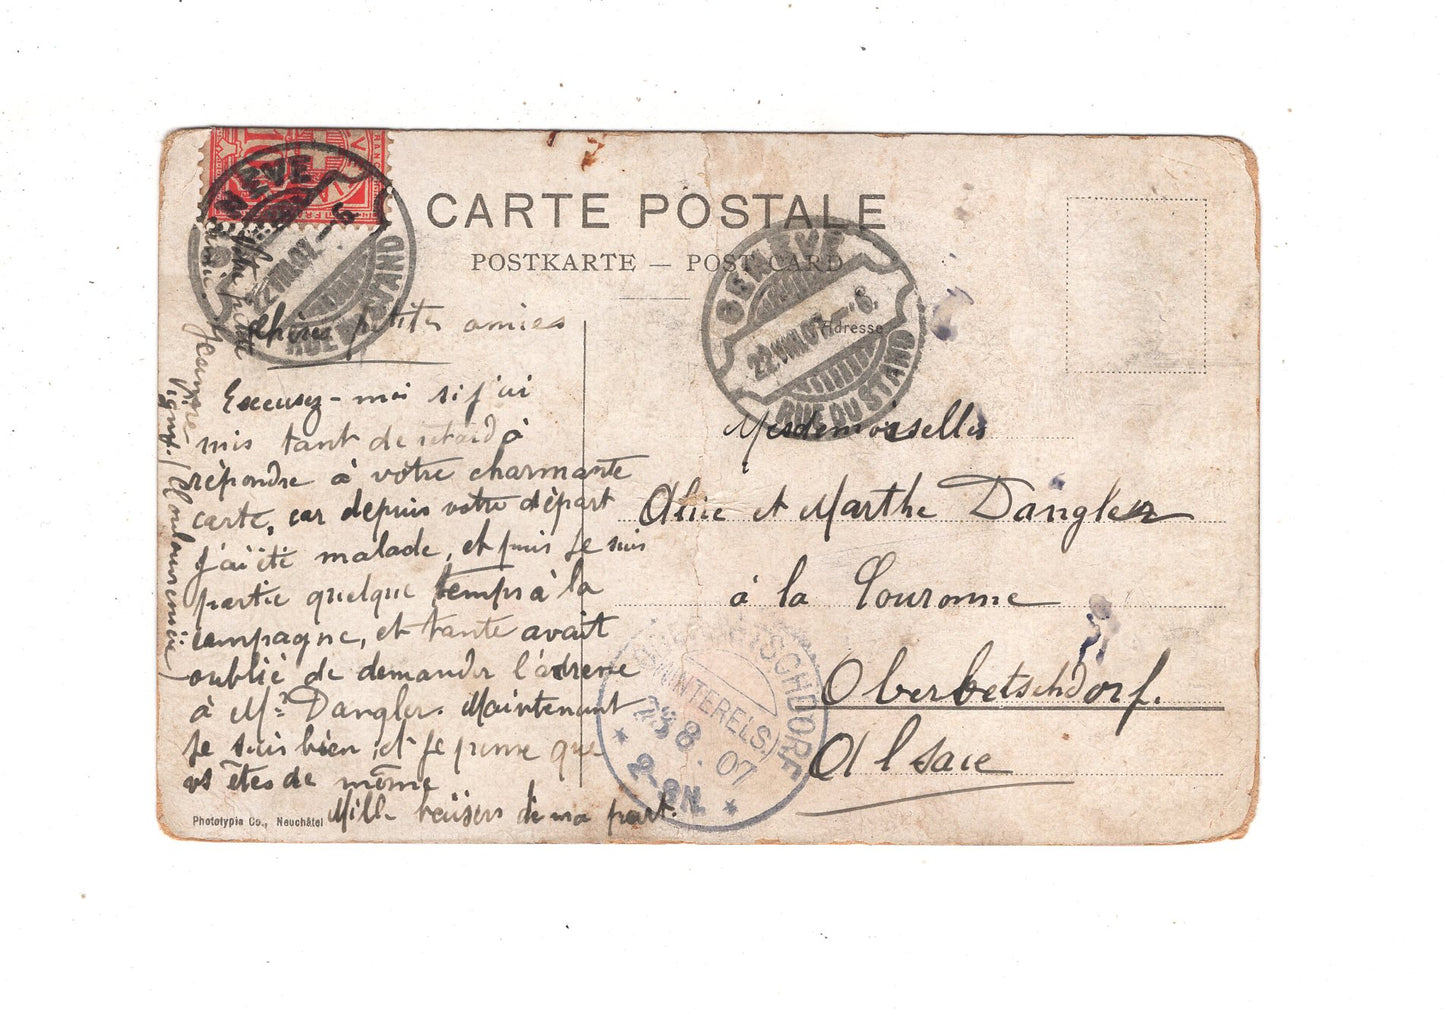 CARTE POSTALE
POSTKARTE — POST CARD
Adresse
GENÈVE
22.VIII.07.–6
RUE DU STAND
GENÈVE
22.VIII.07.–8.
RUE DU STAND
Chères petites amies
Excusez-moi si j'ai
mis tant de retard à
répondre à votre charmante
carte, car depuis votre départ
j'ai été malade, et puis je suis
partie quelque temps à la
campagne, et tante avait
oublié de demander l'adresse
à Mr. Dangler. Maintenant
je suis bien, et je pense que
vs êtes de même
Mille baisers de ma part.
Votre petite
Jeanne
Mesdemoiselles
Alice et Marthe Dangler
à la Couronne
Oberbetschdorf.
Alsace
OBERBETSCHDORF
(UNTERELS.)
23.8.07
2-3N.
Phototypie Co., Neuchâtel